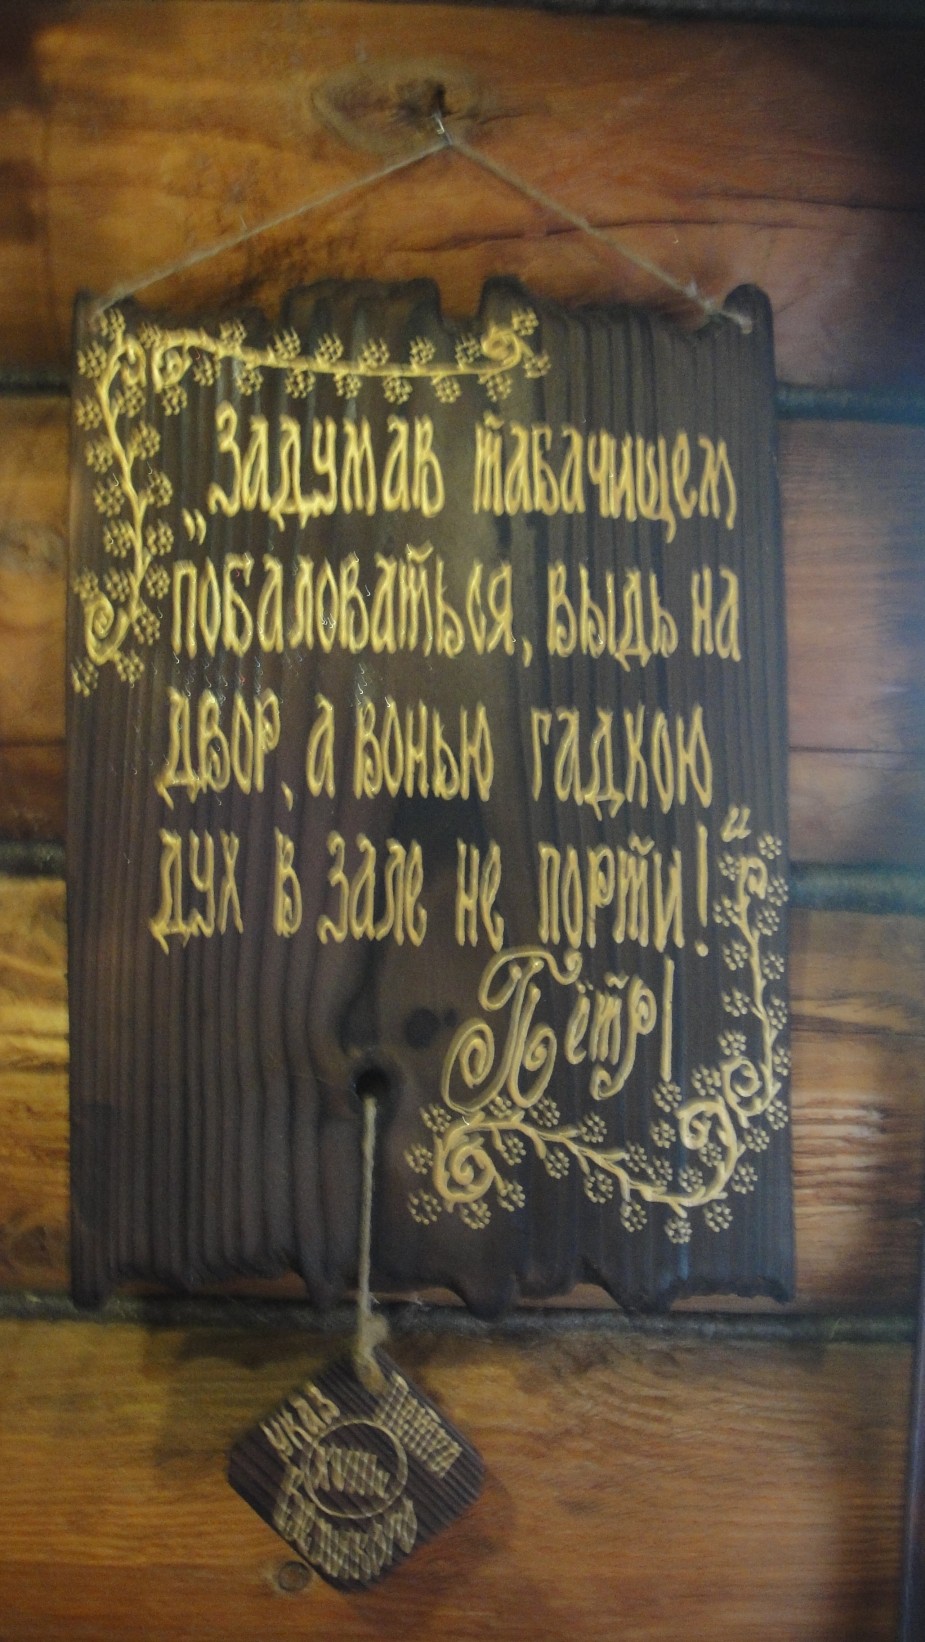 „Задумав табачищем
побаловаться, выдь на
двор, а вонью гадкою
дух в зале не порти!“
Пётр I
указ
Великого